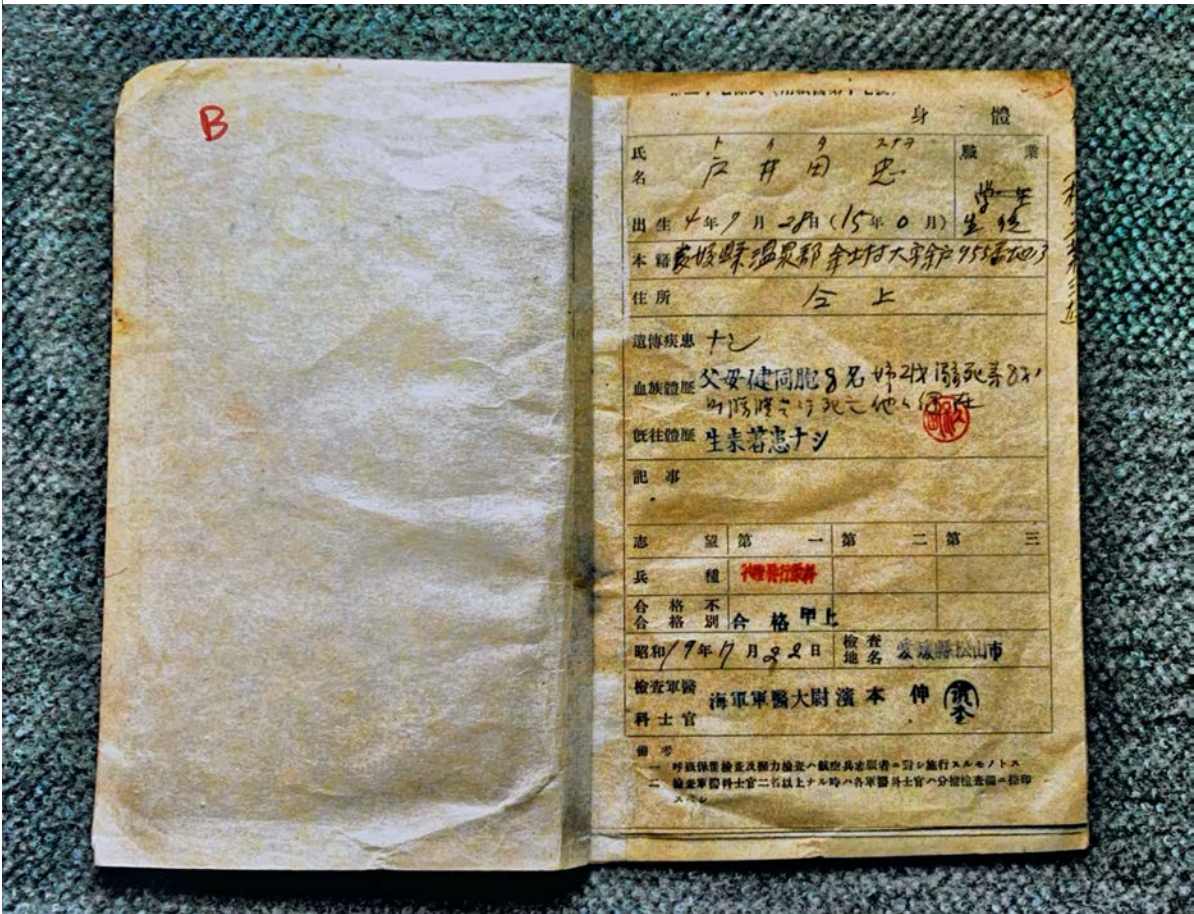 B
身體
氏名 戸井田 忠 トイタ
職業 学生 生徒
出生 4年9月28日(15年0月)
本籍 愛媛縣温泉郡余土村大字余戸955番地ノ3
住所 仝上
遺傳疾患 ナシ
血族體歴 父母健同胞8名
既往體歴 生来著患ナシ
記事
志望 第一 第二 第三
兵種
合格不合格別 合格 甲上
昭和19年 月22日 檢査地名 愛媛縣松山市
檢査軍醫科士官 海軍軍醫大尉 濱本 伸
備考
一 呼吸保留檢査及握力檢査ハ航空兵志願者ニ對シ施行スルモノトス
二 檢査軍醫科士官二名以上ナル時ハ各軍醫科士官ハ分擔檢査欄ニ捺印
スベシ